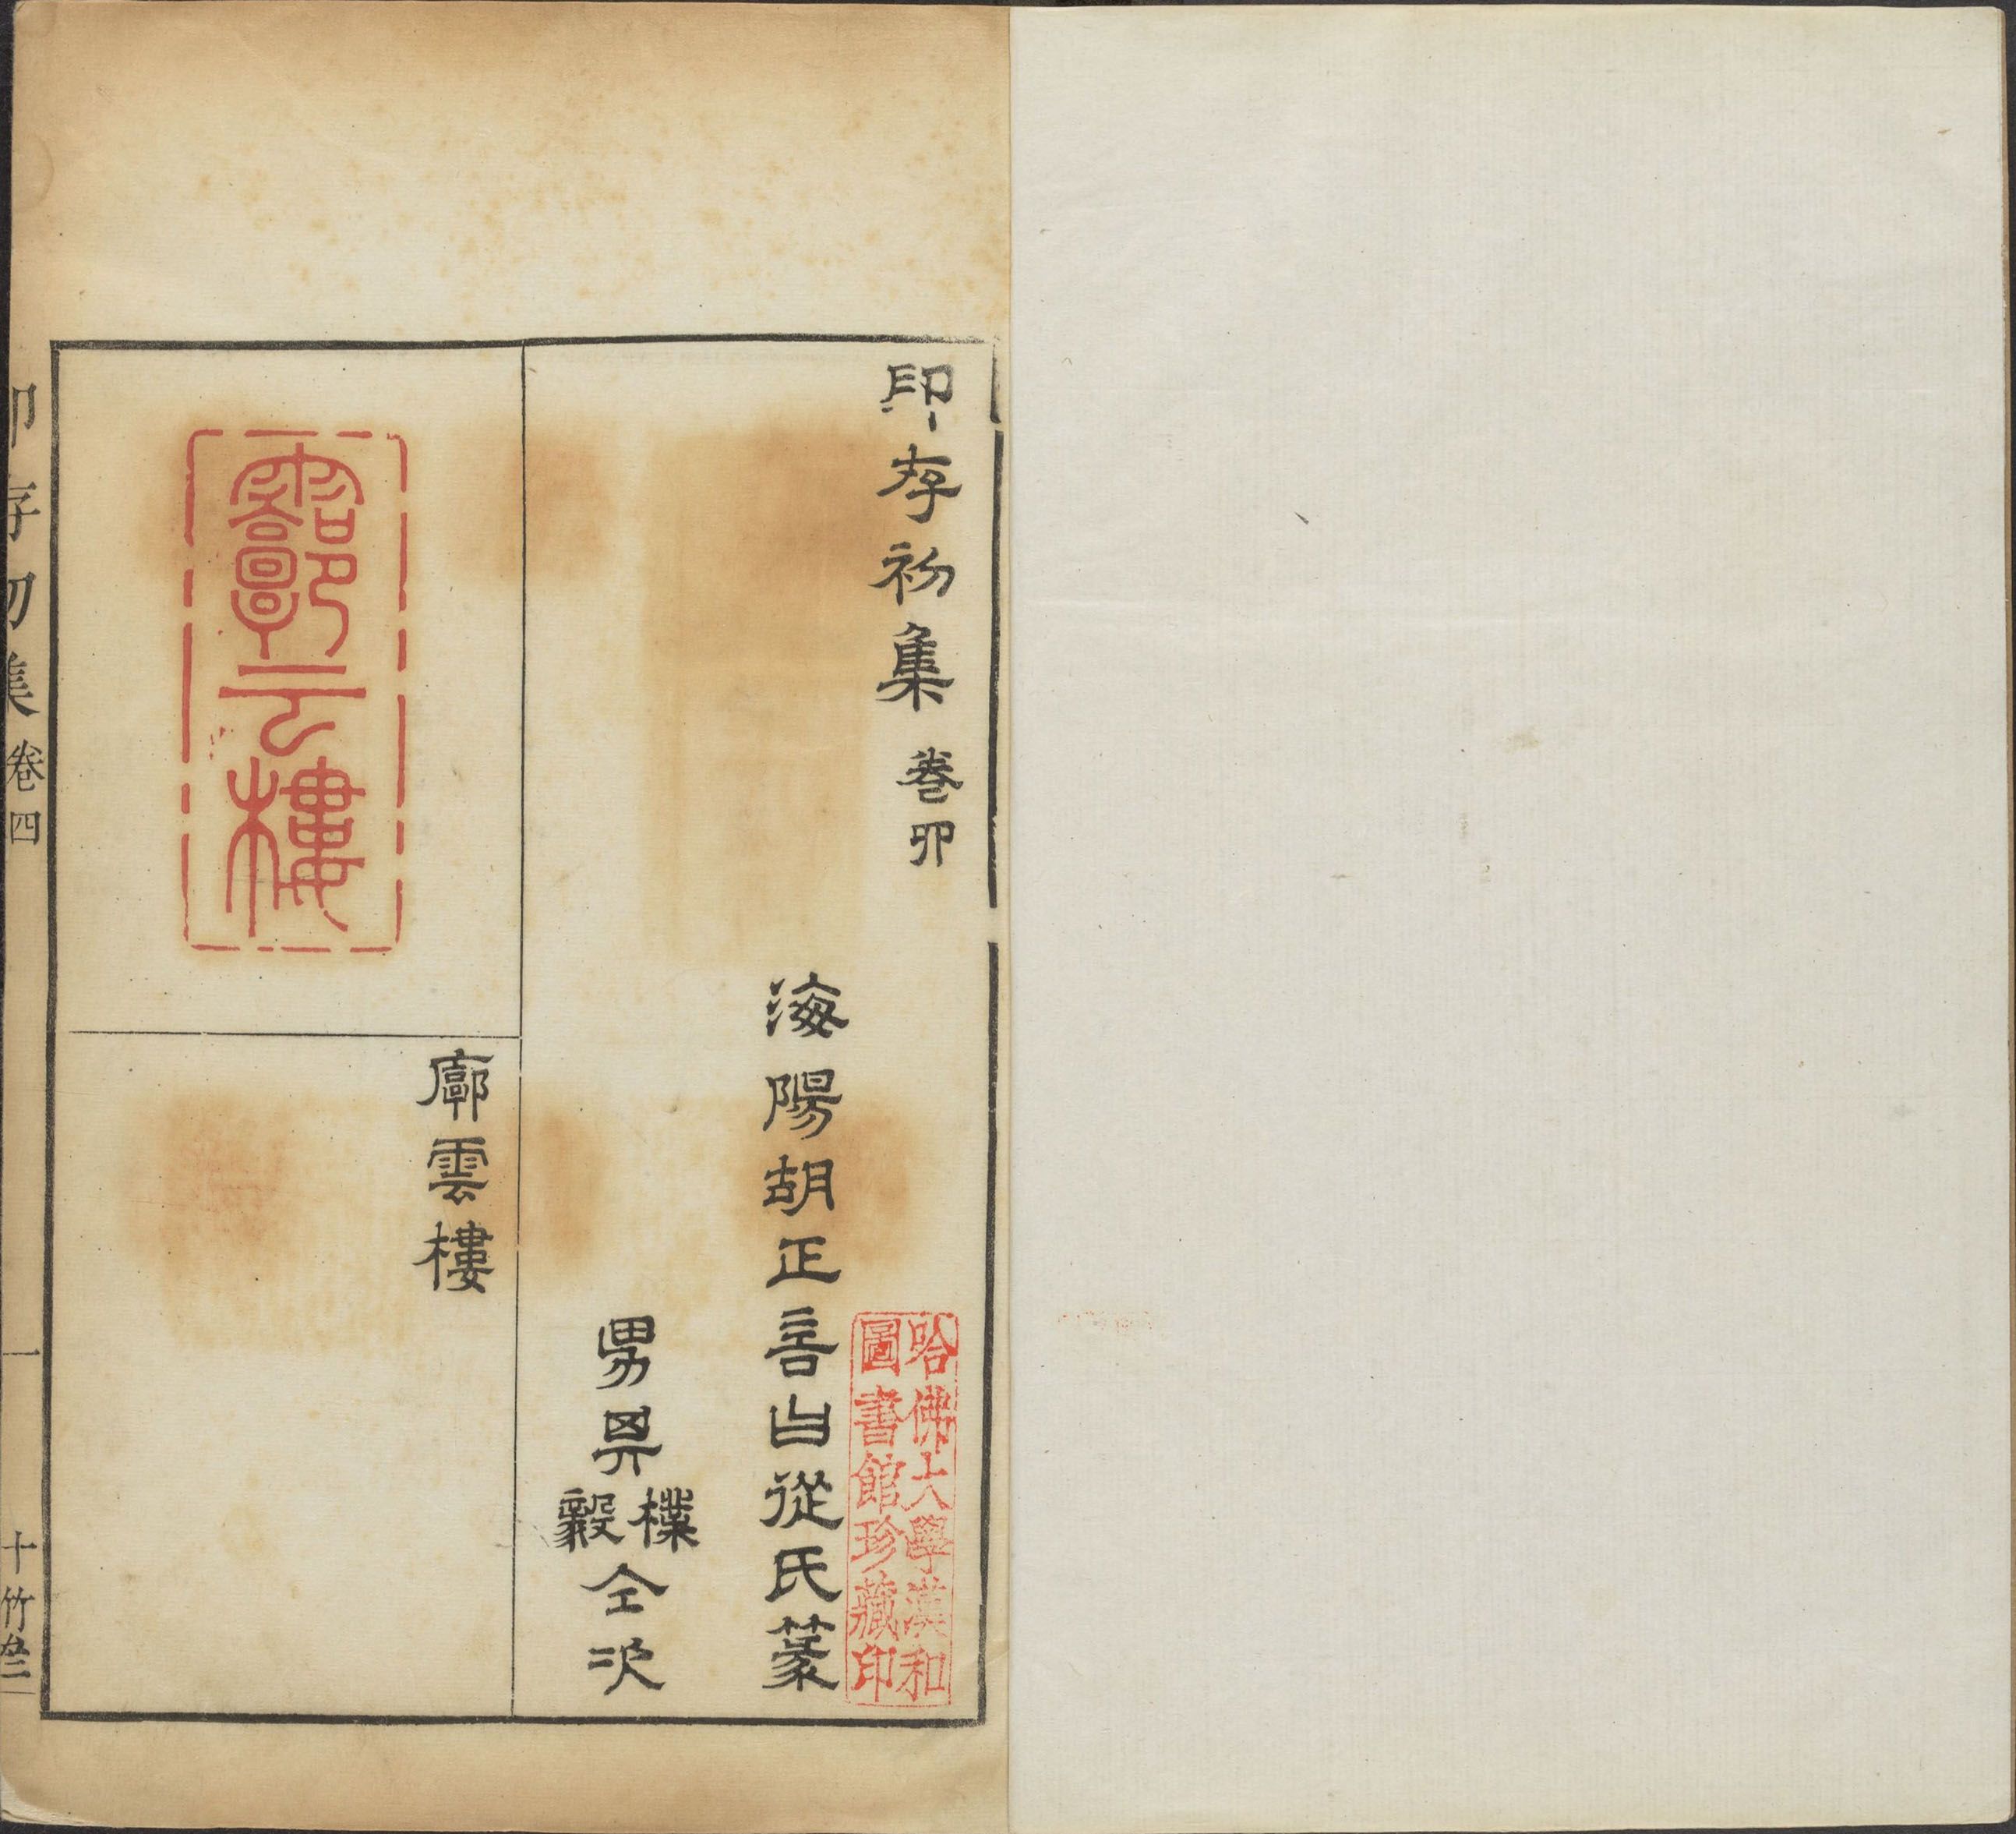 印存初集 卷四
海陽胡正言曰從氏篆
男其樸毅仝次
哈佛大學漢和
圖書館珍藏印
霩云樓
廓雲樓
印存初集 卷四 一 十竹斋